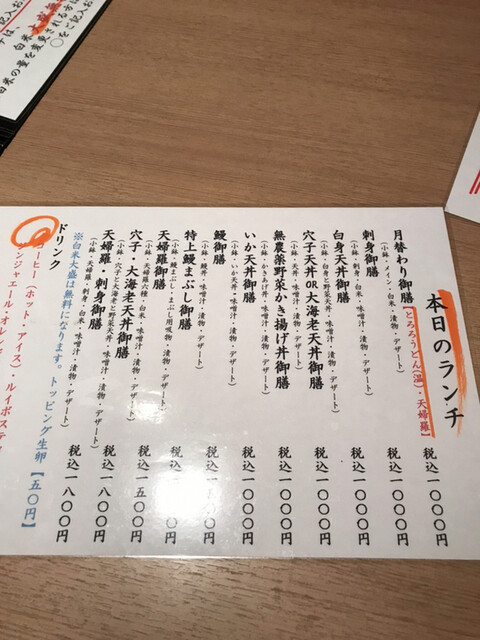 本日のランチ
月替わり御膳【とろろうどん(温)・天婦羅】
税込一〇〇〇円
(小鉢・メイン・白米・漬物・デザート)
刺身御膳
税込一〇〇〇円
(小鉢・刺身・白米・味噌汁・漬物・デザート)
白身天丼御膳
税込一〇〇〇円
(小鉢・白身と野菜天丼・味噌汁・漬物・デザート)
穴子天丼OR大海老天丼御膳
税込一〇〇〇円
(小鉢・天丼・味噌汁・漬物・デザート)
無農薬野菜かき揚げ丼御膳
税込一〇〇〇円
(小鉢・かきあげ丼・味噌汁・漬物・デザート)
いか天丼御膳
税込一〇〇〇円
(小鉢・いか天丼・味噌汁・漬物・デザート)
鰻御膳
(小鉢・鰻丼・味噌汁・漬物・デザート)
特上鰻まぶし御膳
(小鉢・鰻まぶし・まぶし用吸物・漬物・デザート)
天婦羅御膳
(小鉢・天婦羅六種・白米・味噌汁・漬物・デザート)
穴子・大海老天丼御膳
税込一五〇〇円
(小鉢・穴子と大海老と野菜天丼・味噌汁・漬物・デザート)
天婦羅・刺身御膳
税込一八〇〇円
(小鉢・天婦羅・刺身・白米・味噌汁・漬物・デザート)
税込一八〇〇円
※白米大盛は無料になります。トッピング生卵【五〇円】
ドリンク
コーヒー(ホット・アイス)・ルイボスティ
ンジャエール・オレン